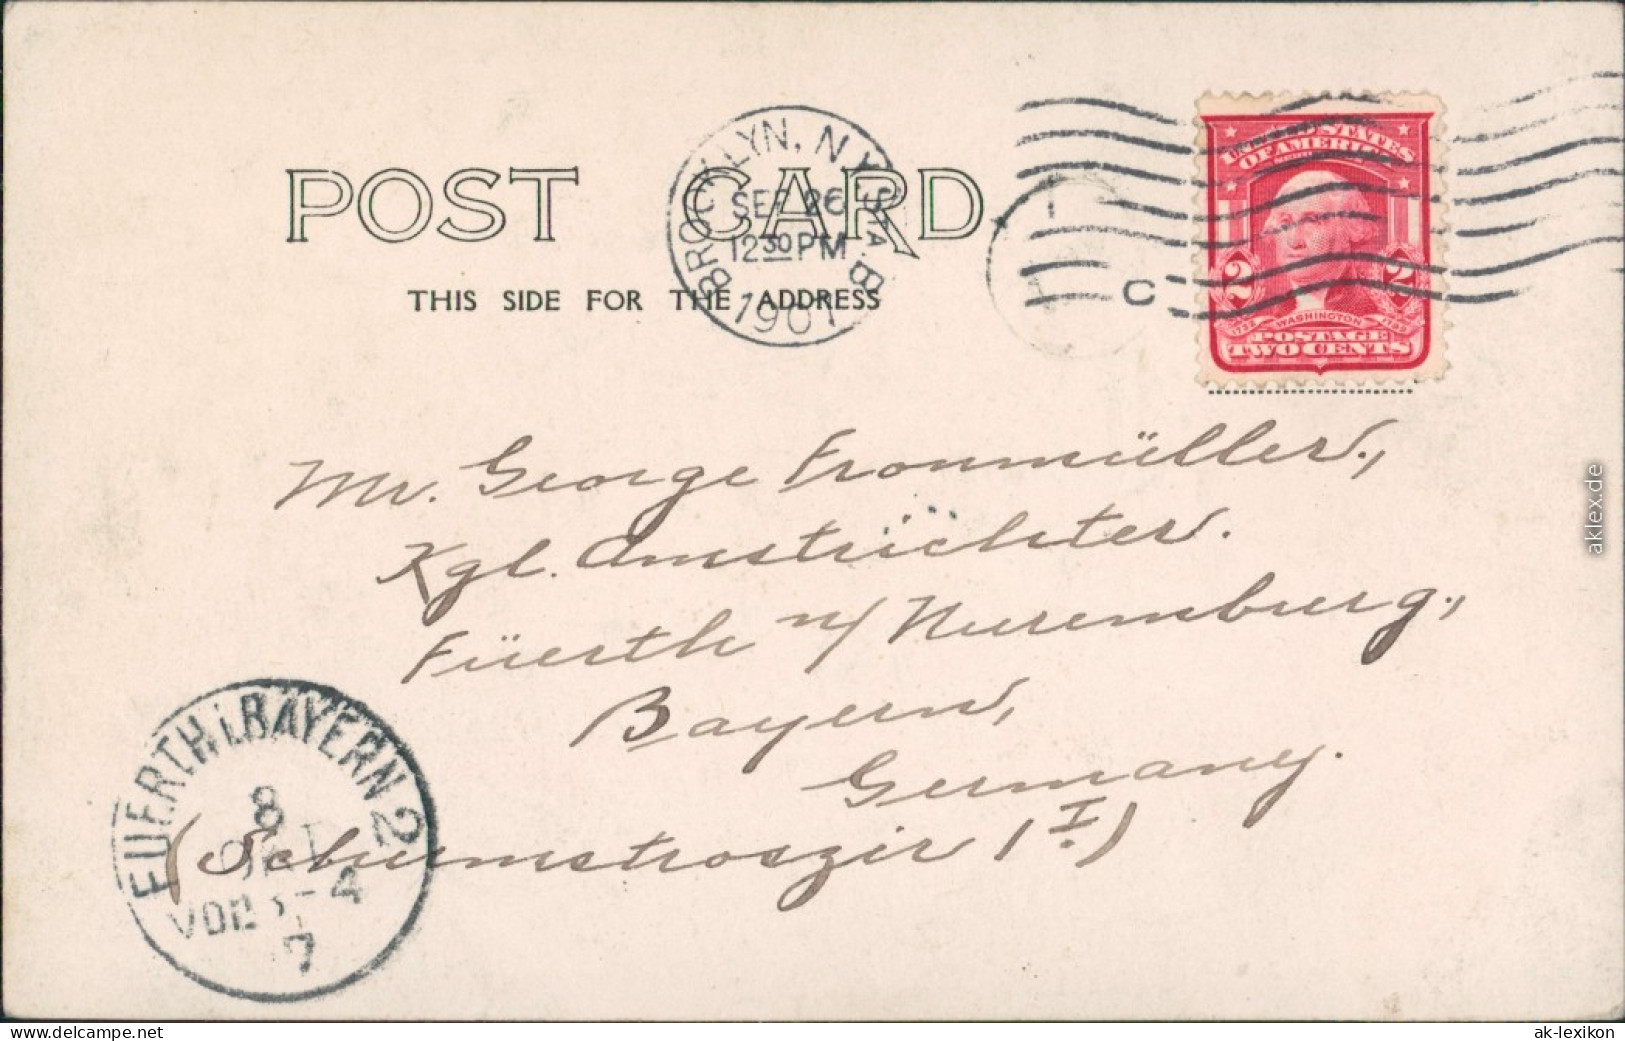 POST CARD
THIS SIDE FOR THE ADDRESS
BROOKLYN, N.Y. STA. B
SEP 26
12 30 PM
1907
C
UNITED STATES
OF AMERICA
2 2
1732 WASHINGTON 1799
POSTAGE
TWO CENTS
Mr. George Fronmüller,
Kgl. Amstrichter.
Füerth n/ Nuremburg,
Bayern,
Germany.
( 1 I.)
FUERTH i. BAYERN 2
8
OKT
VOR 3-4
7
aklex.de
www.delcampe.net
ak-lexikon